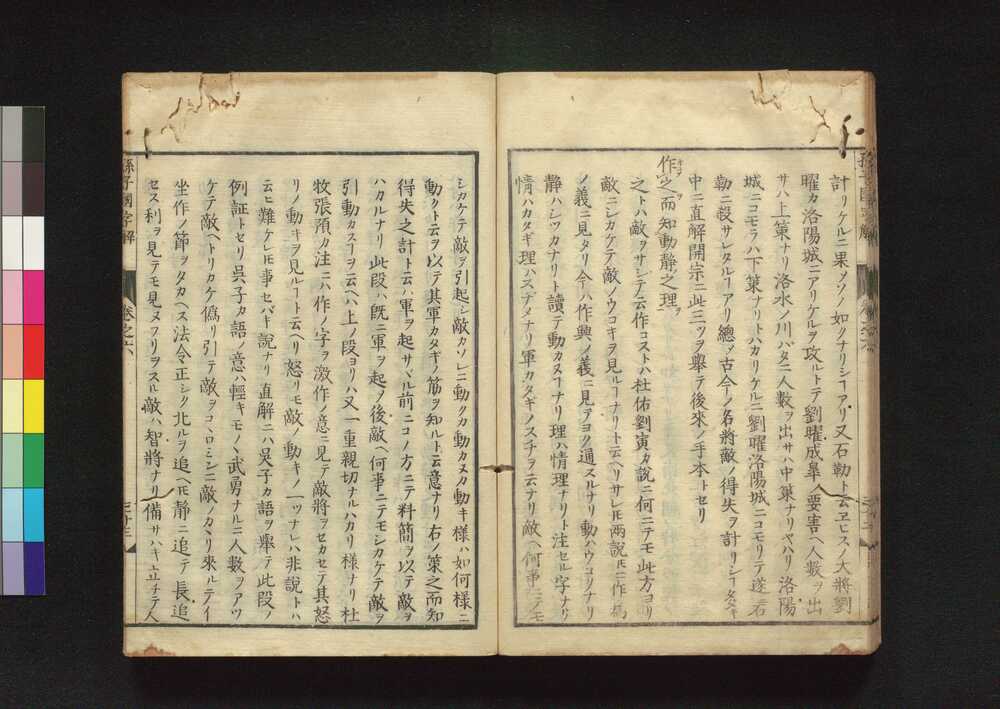 計リケルニ果メソノ如クナリシヿアリ又石勒ト云ヱヒスノ大將劉
曜カ洛陽城ニアリケルヲ攻ルトテ劉曜成皐ノ要害ヘ人數ヲ出
サハ上策ナリ洛水ノ川バタニ人數ヲ出サハ中策ナリヤハリ洛陽
城ニコモラハ下策ナリトハカリケルニ劉曜洛陽城ニコモリテ遂石
勒ニ殺サレタルヿアリ總メ古今ノ名將敵ノ得失ヲ計リシヿ
中ニ直解開宗ニ此三ツヲ舉テ後來ノ手本トセリ
作之而知動靜之理
之トハ敵ヲサシテ云作コストハ杜佑劉寅カ説ニ何ニテモ此方ヨリ
敵ニシカケテ敵ノウコキヲ見ルヿナリト云ヘリサレ𪜈兩説𪜈ニ作
ノ義ニ見タリ今ハ作興ノ義ニ見テヨク通スルナリ動ハウコクナリ
靜ハシツカナリト讀テ動カヌヿナリ理ハ情理ナリト注セル字ナリ
情ハカタギ理ハスヂメナリ軍カタギノスヂヲ云ナリ敵ヘ何事ニノモ
シカケテ敵ヲ引起シ敵カソレニ動クカ動カヌカ動キ樣ハ如何樣ニ
動クト云ヲ以テ其軍カタギノ筋ヲ知ルト云意ナリ右ノ策之而知
得失之計トニハ軍ヲ起サヾル前ニコノ方ニテ料簡ヲ以テ敵ヲ
ハカルナリ此段ハ既ニ軍ヲ起メ後敵ヘ何事ニテモシカケテ敵ヲ
引動カスヿヲ云ヘハ上ノ段ヨリハ又一重親切ナルハカリ樣ナリ杜
牧張預カ注ニハ作ノ字ヲ激作ノ意ニ見テ敵將ヲセカセテ其怒
リノ動キヲ見ルヿト云ヘリ怒リモ敵ノ動キノ一ツナレハ非説トハ
云ヒ難ケレ𪜈事セバキ説ナリ直解ニハ吳子カ語ヲ舉テ此段ノ
例証トセリ吳子カ語ノ意ハ輕キモノヽ武勇ナルニ人數ヲアツ
ケテ敵ヘトリカケ僞リ引テ敵ヲコヽロミンニ敵ノカヽリ來ルテイ
坐作ノ節ヲタカヘス法令正シク北ルヲ追ヘ𪜈靜ニ追テ長追
セス利ヲ見テモ見ヌフリヲスル敵ハ智將ナリ備サハキ立チテ人
孫子國字解
卷之六